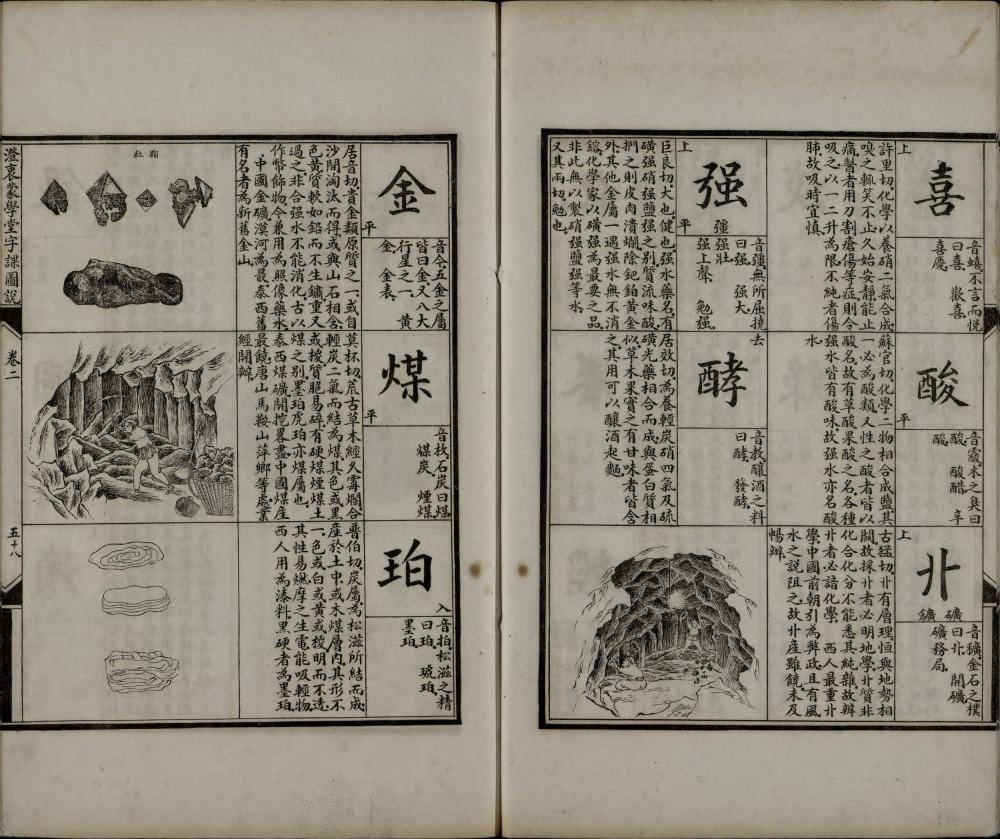 喜
上
音蟢.不言而悦
曰喜. 歡喜.
喜慶.
許里切.化學以養硝二氣合成
嗅之輒笑不止.久始安靜.能止
痛.醫者用刀割瘡傷等症.則令
吸之.以一二升為限.不純者傷
肺.故吸時宜慎.
酸
平
木之臭曰
酸. 酸醋. 辛
酸.
蘇官切.化學二物相合成鹽.其
一必為酸類.又性之酸者皆以
酸名.故有草酸果酸之名.各種
强水皆有酸味.故强水亦名酸
水.
卝
上
礦 鑛
音獷.金石之樸
曰卝. 開礦.
礦務局.
古猛切.卝有層理.恒與地勢相
關.故採卝者必明地學.卝質非
化合化分不能悉其純雜.故辦
卝者必諳化學. 西人最重卝
學.中國前朝引為弊政.且有風
水之說阻之.故卝產雖饒.未及
暢辦.
强
上
平
彊
音彊.無所屈撓
曰强. 强大.
强壯.
强上聲. 勉强.
巨良切.大也.健也.强水.藥名.有
磺强硝强鹽强之别.質流味酸.
捫之則皮肉潰爛.除鈀鉑黃金
外.其他金屬一遇强水無不消
鎔.化學家以磺强為最要之品.
非此無以製硝强鹽强等水.
又其兩切.勉也.
酵
去
音教.釀酒之料
曰酵. 發酵.
居效切.為養輕炭硝四氣及硫
磺光藥相合而成.與蛋白質相
似.草木果實之有甘味者皆含
之.其用可以釀酒起麵.
金
平
音今.五金之屬
皆曰金.又八大
行星之一. 黃
金. 金表.
居音切.貴金類.原質之一.或自
沙間淘汰而得.或與山石相合.
色黃質軟如鉛.而不生鏽.重又
過之.非合强水不能消化.古以
作幣飾物.今兼用為照像藥水.
中國金礦.漠河為最.泰西舊
有名者.為新舊金山.
顆粒
煤
平
音枚.石炭曰煤.
煤炭. 煙煤.
莫杯切.荒古草木經久霉爛.合
輕炭二氣而結為煤.其色或黑
或椶.質脃易碎.有硬煤煙煤土
煤之别.墨珀虎珀亦煤屬也.
泰西煤礦開挖畧盡.中國煤產
最饒.唐山馬鞍山萍鄉等處.業
經開辦.
珀
入
音拍.松滋之精
曰珀. 琥珀.
墨珀.
普伯切.炭屬.為松滋所結而成.
產於土中.或木煤層內.其形不
一.色或白或黃或椶.明而不透.
其性易燃.摩之生電.能吸輕物.
西人用為漆料.黑硬者為墨珀.
澄衷蒙學堂字課圖說
卷二
五十八